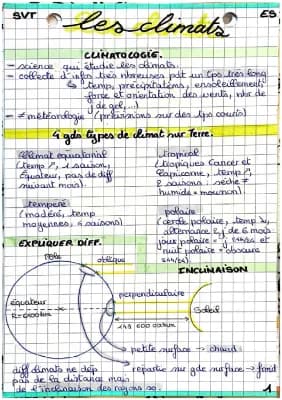 SVT
ES
les climats
CLIMATOLOGIE.
- science qui étudie les climats.
- collecte d'infos très nbreuses pdt un tps très long
↳ temp, précipitations, ensoleillement
force et orientation des vents, nbr de
j de gel, ...)
- ≠ météorologie (prévisions sur des tps courts)
4 gds types de climat sur Terre.
climat équatorial
(temp ↗, 1 saison,
Équateur, pas de diff
suivant mois).
tropical
(tropiques Cancer et
Capricorne, temp ↗,
2 saisons : sèche ≠
humide = mousson)
tempéré
(modéré, temp
moyennes, 4 saisons)
polaire
(cercle polaire, temp ↘,
alternance de 6 mois
jour polaire = et
nuit polaire = obscure
EXPLIQUER DIFF.
Pôle
oblique
INCLINAISON
Équateur
R=6400km
perpendiculaire
Soleil
149 600 000km
petite surface → chaud
répartie sur gde surface → froid
diff climats ne dép
pas de la distance mais
de l'inclinaison des rayons so.
1